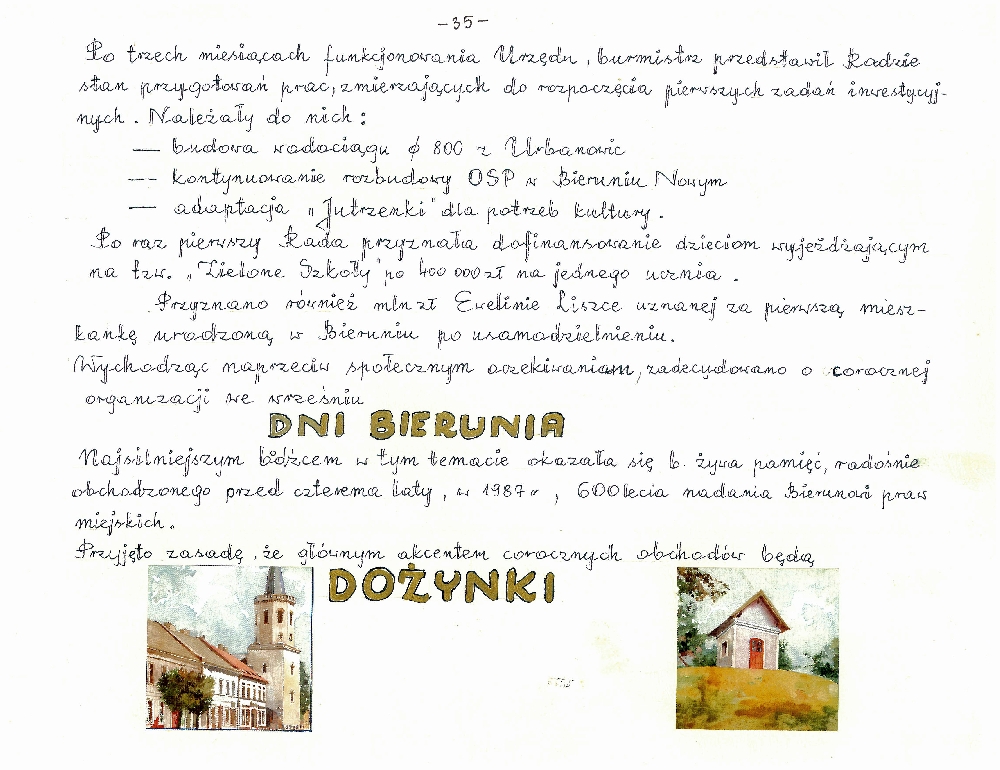 -35-
Po trzech miesiącach funkcjonowania Urzędu, burmistrz przedstawił Radzie
stan przygotowań prac, zmierzających do rozpoczęcia pierwszych zadań inwestycyj-
nych. Należały do nich:
— budowa wodociągu ϕ 800 z Urbanowic
— kontynuowanie rozbudowy OSP w Bieruniu Nowym
— adaptacja „Jutrzenki" dla potrzeb kultury.
Po raz pierwszy Rada przyznała dofinansowanie dzieciom wyjeżdżającym
na tzw. „Zielone Szkoły" po 400 000 zł na jednego ucznia.
Przyznano również mln zł Ewelinie Liszce uznanej za pierwszą miesz-
kankę urodzoną w Bieruniu po usamodzielnieniu.
Wychodząc naprzeciw społecznym oczekiwaniom, zadecydowano o corocznej
organizacji we wrześniu
DNI BIERUNIA
Najsilniejszym bodźcem w tym temacie okazała się b. żywa pamięć, radośnie
obchodzonego przed czterema laty, w 1987 r, 600lecia nadania Bieruniowi praw
miejskich.
Przyjęto zasadę, że głównym akcentem corocznych obchodów będą
DOŻYNKI